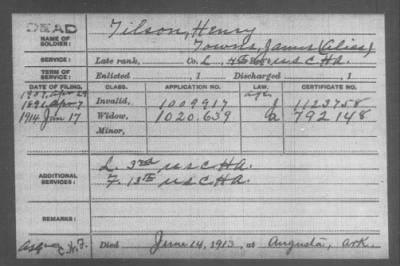 DEAD
NAME OF SOLDIER: Tilson, Henry
Towns, James (Alias)
SERVICE: Late rank, Co. L, 4 U.S.C.H.A.
TERM OF SERVICE: Enlisted , 1 Discharged , 1
DATE OF FILING. CLASS. APPLICATION NO. LAW. CERTIFICATE NO.
1907, Apr 29
1891, Apr 7 Invalid, 1009917 1123758
1914, Jan 17 Widow, 1020.639 792148
Minor,
ADDITIONAL SERVICES: L. 3rd U.S.C.H.A.
F. 13th U.S.C.H.A.
REMARKS:
Died June 14, 1913, at Augusta, Ark.